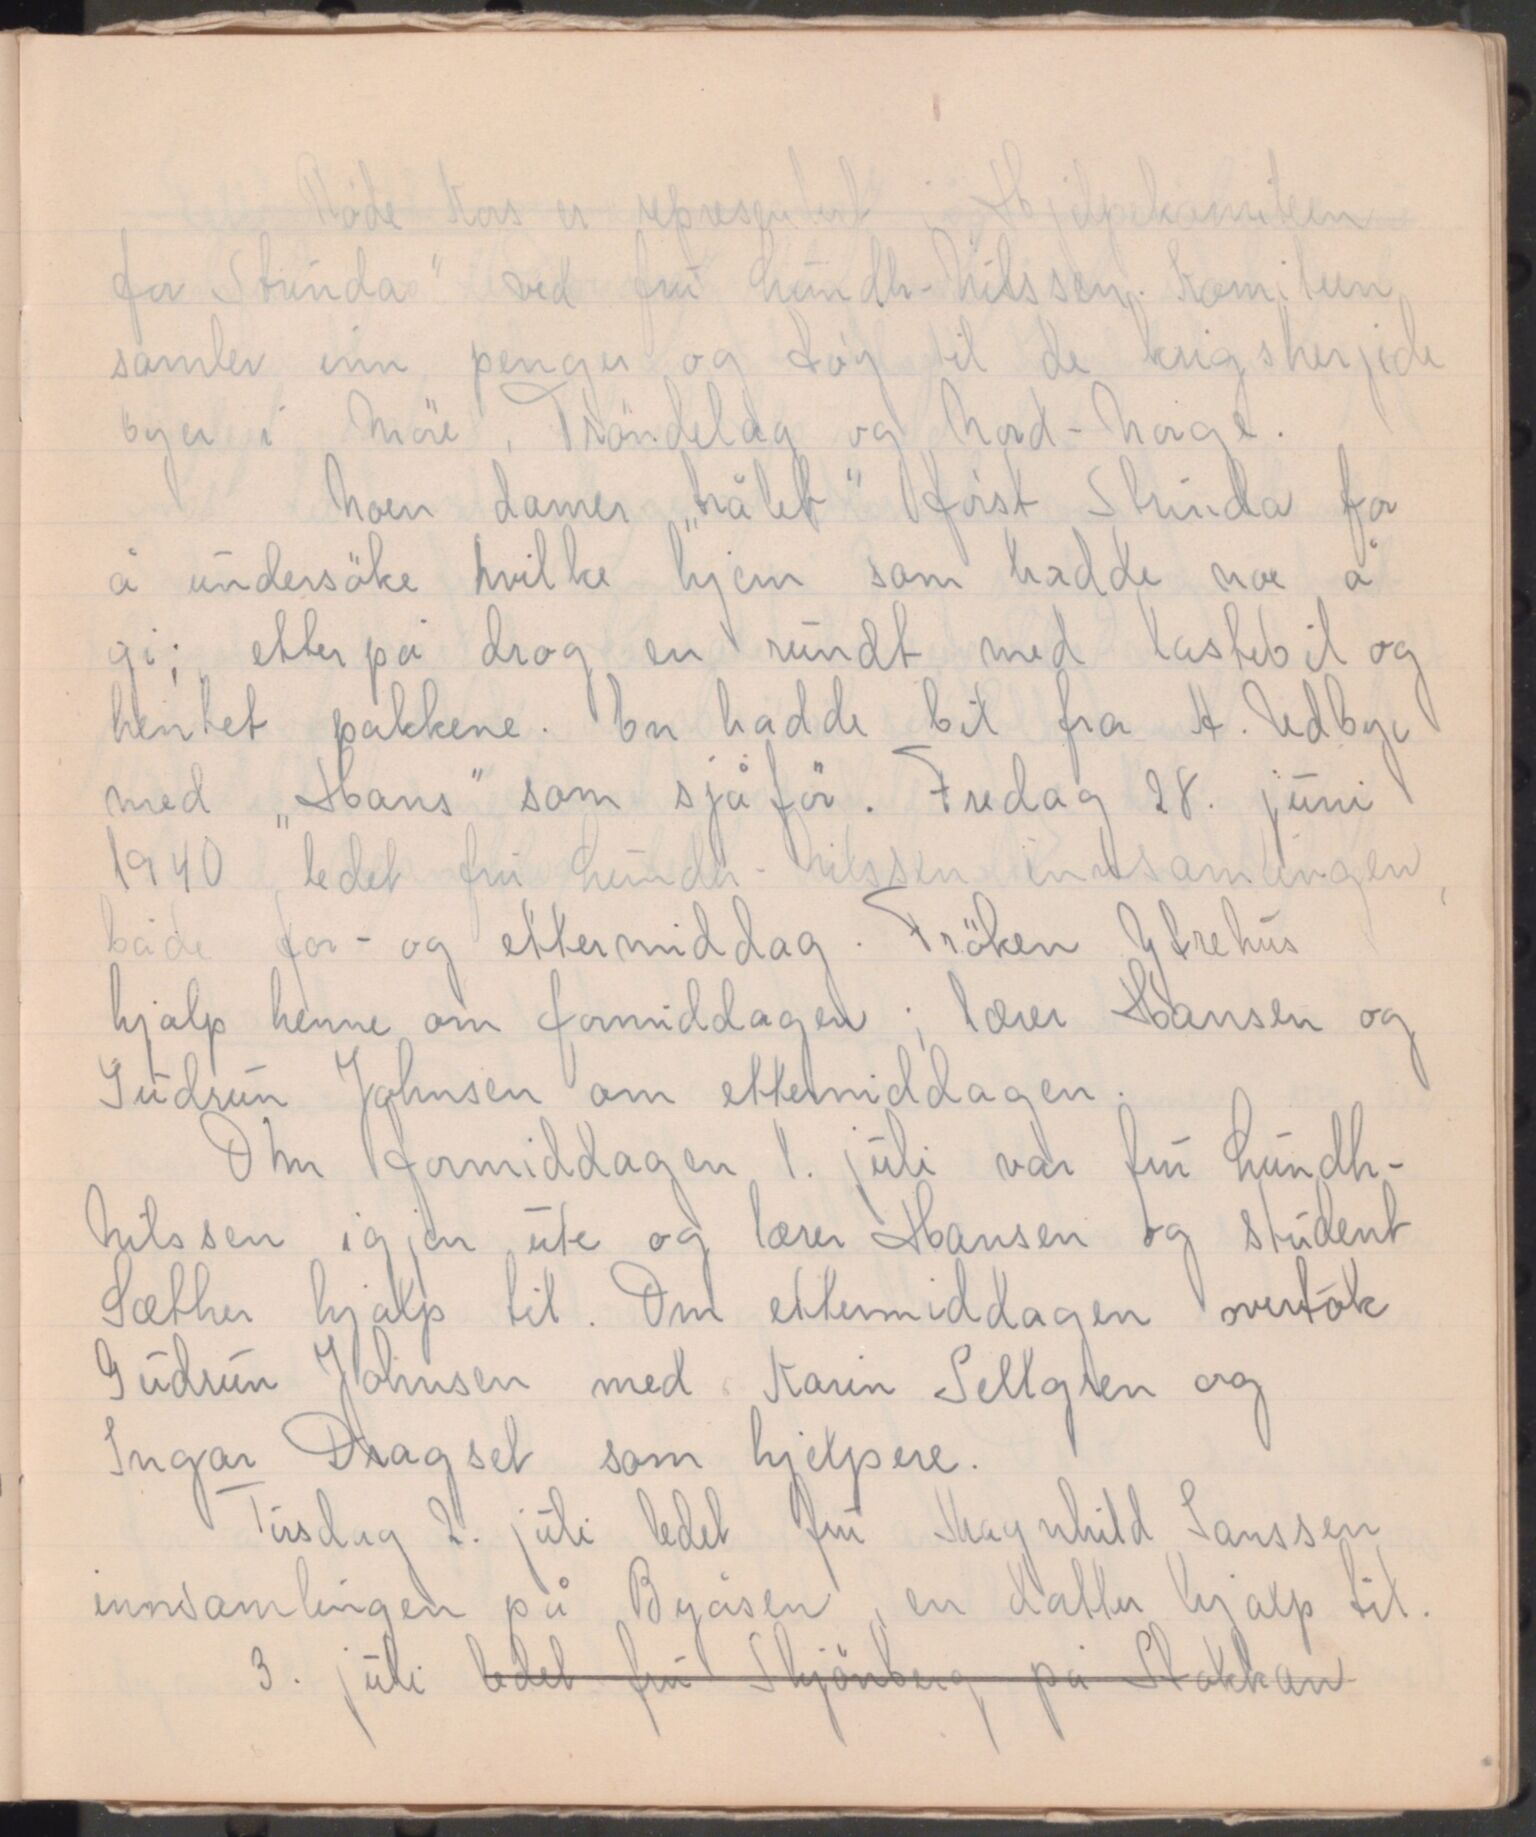 Röde Kors er representert i „Hjelpekomiteen
for Strinda" ved frú Lúndh-Nilssen. Komiteen
samler inn penger og töy til de krigsherjede
byer i Möre, Tröndelag og Nord-Norge.
Noen damer „trålet" först Strinda for
å undersöke hvilke hjem som hadde noe å
gi; etterpå drog en rúndt med lastebil og
hentet pakkene. En hadde bil fra H. Udbye
med „Hans" som sjåför. Fredag 28. júni
1940 ledet frú Lúndh-Nilssen innsamlingen,
både for- og ettermiddag. Fröken Ytrehús
hjalp henne om formiddagen; lærer Hansen og
Gúdrún Johnsen om ettermiddagen.
Om formiddagen 1. júli var frú Lúndh-
Nilssen igjen úte og lærer Hansen og stúdent
Sæther hjalp til. Om ettermiddagen overtok
Gúdrún Johnsen med Karin Sellgren og
Ingar Dragset som hjelpere.
Tirsdag 2. júli ledet frú Magnhild Janssen
innsamlingen på Byåsen, en datter hjalp til.
3. júli ledet frú Skjönberg på Stokkan